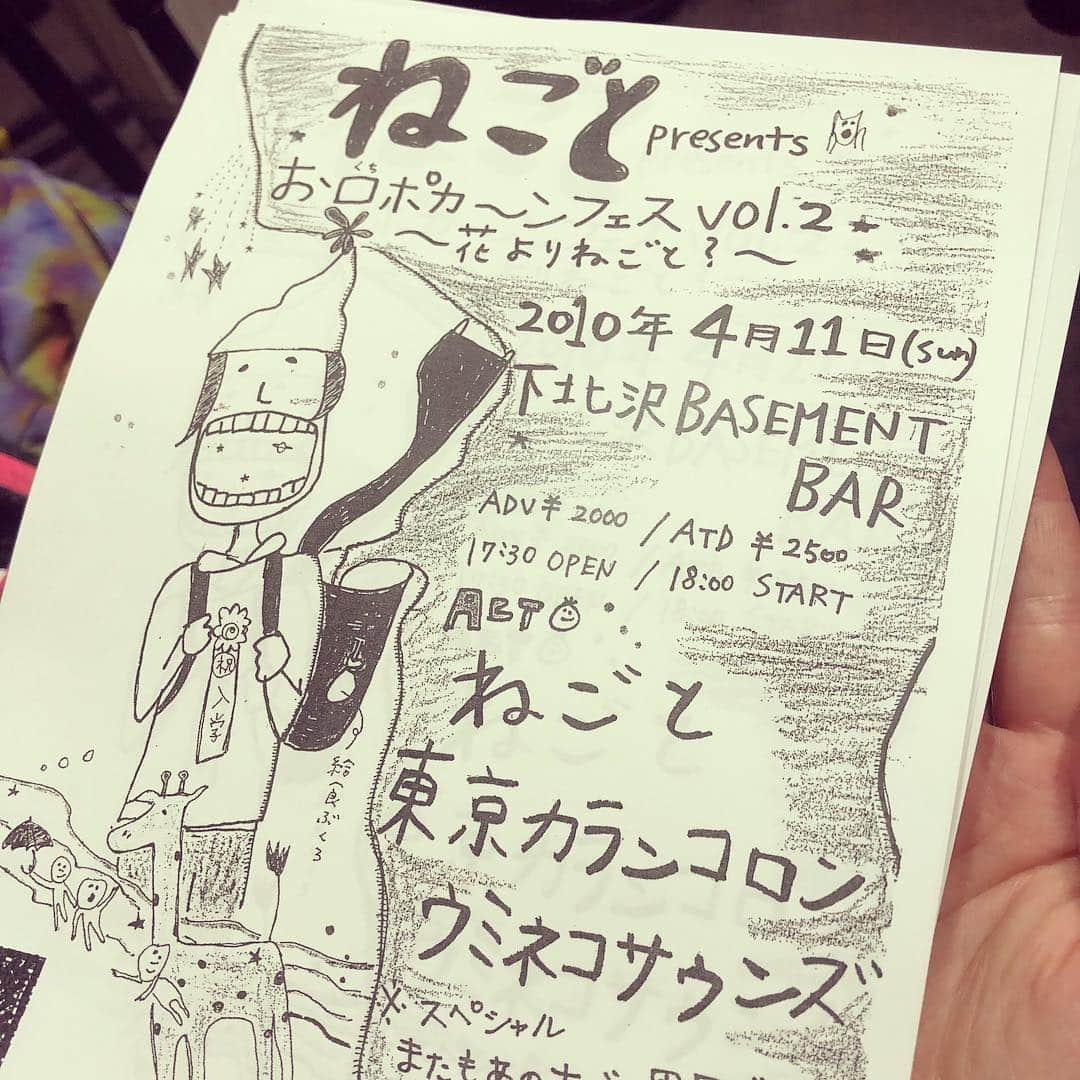 ねごと presents
お口ポカ〜ンフェス vol.2
くち
〜花よりねごと?〜
2010年 4月11日(sun)
下北沢BASEMENT
BAR
ADV ¥2000 / ATD ¥2500
17:30 OPEN / 18:00 START
ACT
ねごと
祝入学
給食ぶくろ
東京カランコロン
ウミネコサウンズ
※スペシャル
またもあの